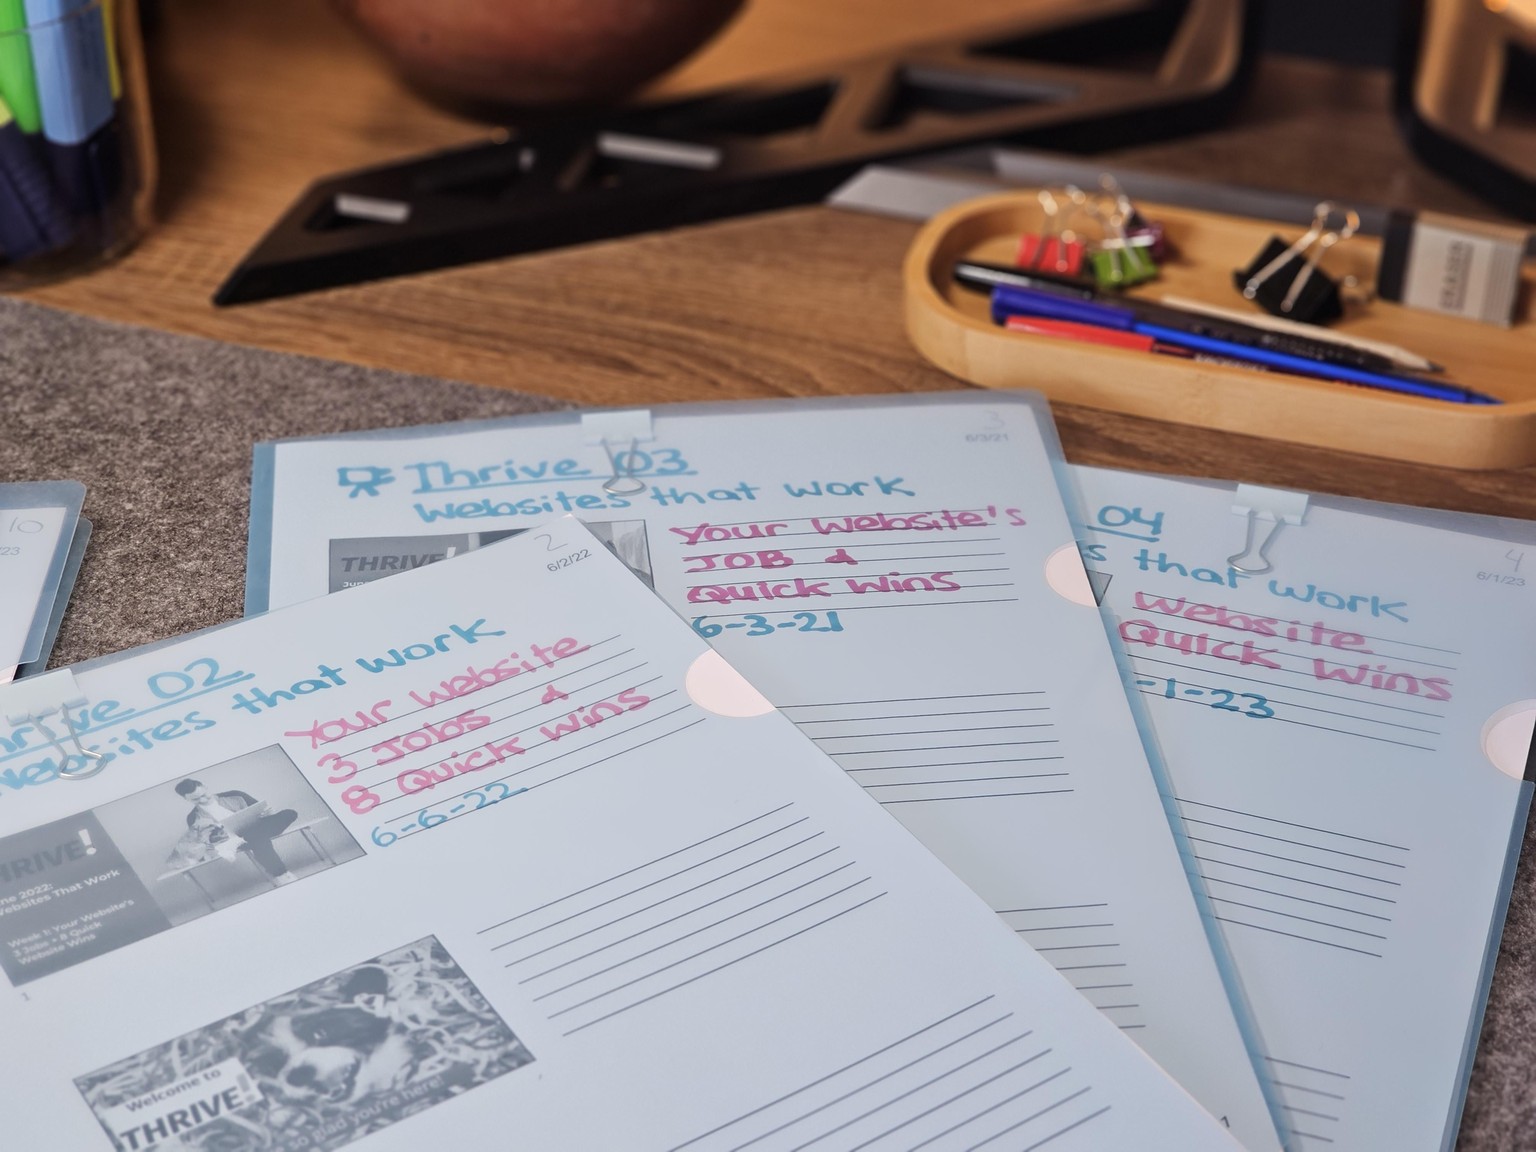 3
6/3/21
Thrive 03
Websites that work
THRIVE!
Your Website's
JOB &
Quick Wins
6-3-21
04
4
6/1/23
s that work
Website
Quick Wins
-1-23
10
/23
2
6/2/22
rive 02
Websites that work
Your Website
3 Jobs &
8 Quick Wins
6-6-22
THRIVE!
ne 2022:
Websites That Work
Week 1: Your Website's
3 Jobs + 8 Quick
Website Wins
1
Welcome to
THRIVE!
so glad you're here!